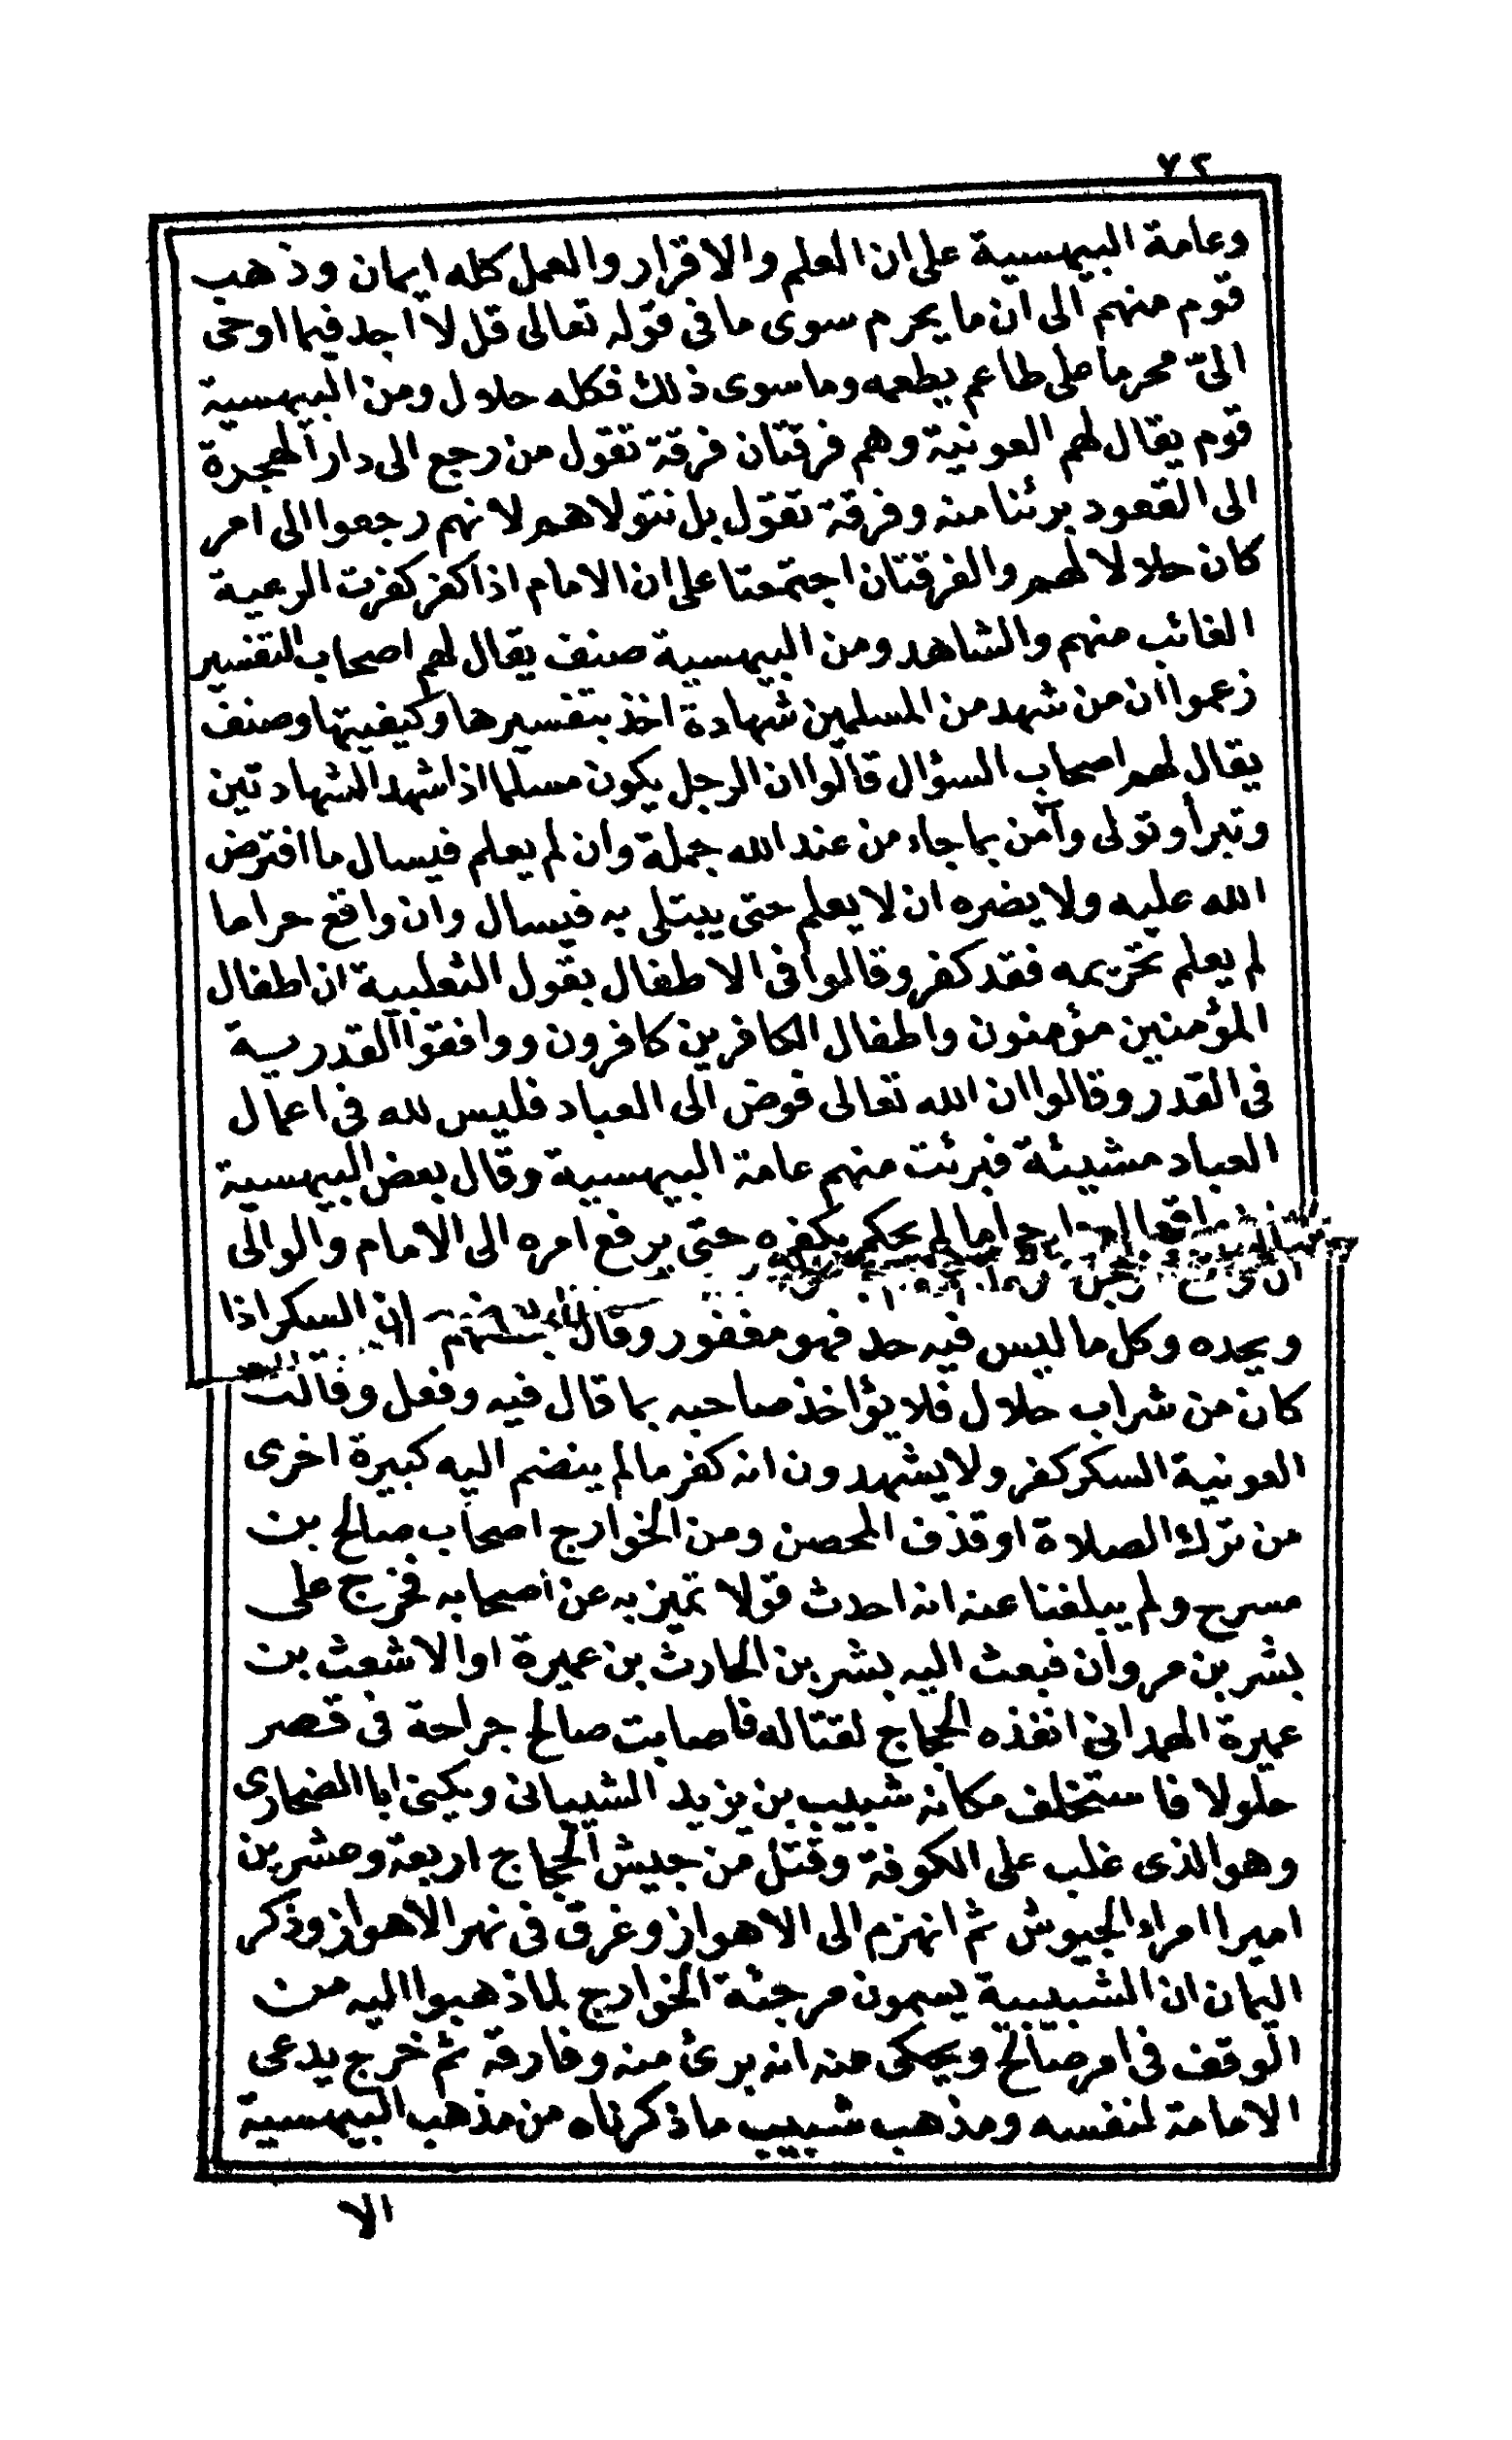 ٧٢
وعامة البيهسية على ان العلم والاقرار والعمل كله ايمان وذهب
قوم منهم الى ان ما يحرم سوى ما فى قوله تعالى قل لا اجد فيما اوحى
الىّ محرما على طاعم يطعمه وما سوى ذلك فكله حلال ومن البيهسية
قوم يقال لهم العونية وهم فرقتان فرقة تقول من رجع الى دار الهجرة
الى القعود برئنا منه وفرقة تقول بل نتولاهم لانهم رجعوا الى امر
كان حلالا لهم والفرقتان اجتمعتا على ان الامام اذا كفر كفرت الرعية
الغائب منهم والشاهد ومن البيهسية صنف يقال لهم اصحاب التفسير
زعموا ان من شهد من المسلمين شهادة اخذ بتفسيرها وكيفيتها وصنف
يقال لهم اصحاب السؤال قالوا ان الرجل يكون مسلما اذا شهد الشهادتين
وتبرأ وتولى وآمن بما جاء من عند الله جملة وان لم يعلم فيسال ما افترض
الله عليه ولا يضره ان لا يعلم حتى يبتلى به فيسال وان واقع حراما
لم يعلم تحريمه فقد كفر وقالوا فى الاطفال بقول الثعلبية ان اطفال
المؤمنين مؤمنون واطفال الكافرين كافرون ووافقوا القدرية
فى القدر وقالوا ان الله تعالى فوض الى العباد فليس لله فى اعمال
العباد مشيئة فبرئت منهم عامة البيهسية وقال بعض البيهسية
ان واقع الرجل حراما لم يحكم بكفره حتى يرفع امره الى الامام والوالى
ويحده وكل ما ليس فيه حد فهو مغفور وقال بعضهم ان السكر اذا
كان من شراب حلال فلا يؤاخذ صاحبه بما قال فيه وفعل وقالت
العونية السكر كفر ولا يشهدون انه كفر مالم ينضم اليه كبيرة اخرى
من ترك الصلاة او قذف المحصن ومن الخوارج اصحاب صالح بن
مسرح ولم يبلغنا عنه انه احدث قولا تميز به عن اصحابه فخرج على
بشر بن مروان فبعث اليه بشر بن الحارث بن عميرة او الاشعث بن
عميرة الهمدانى انفذه الحجاج لقتاله فاصابت صالح جراحة فى قصر
حلولا فاستخلف مكانه شبيب بن يزيد الشيبانى ويكنى ابا الضحارى
وهو الذى غلب على الكوفة وقتل من جيش الحجاج اربعة وعشرين
اميرا امراء الجيوش ثم انهزم الى الاهواز وغرق فى نهر الاهواز وذكر
اليمان ان الشبيبية يسمون مرجئة الخوارج لما ذهبوا اليه من
الوقف فى امر صالح ويحكى عنه انه برئ منه وفارقه ثم خرج يدعى
الامامة لنفسه ومذهب شبيب ما ذكرناه من مذهب البيهسية
الا